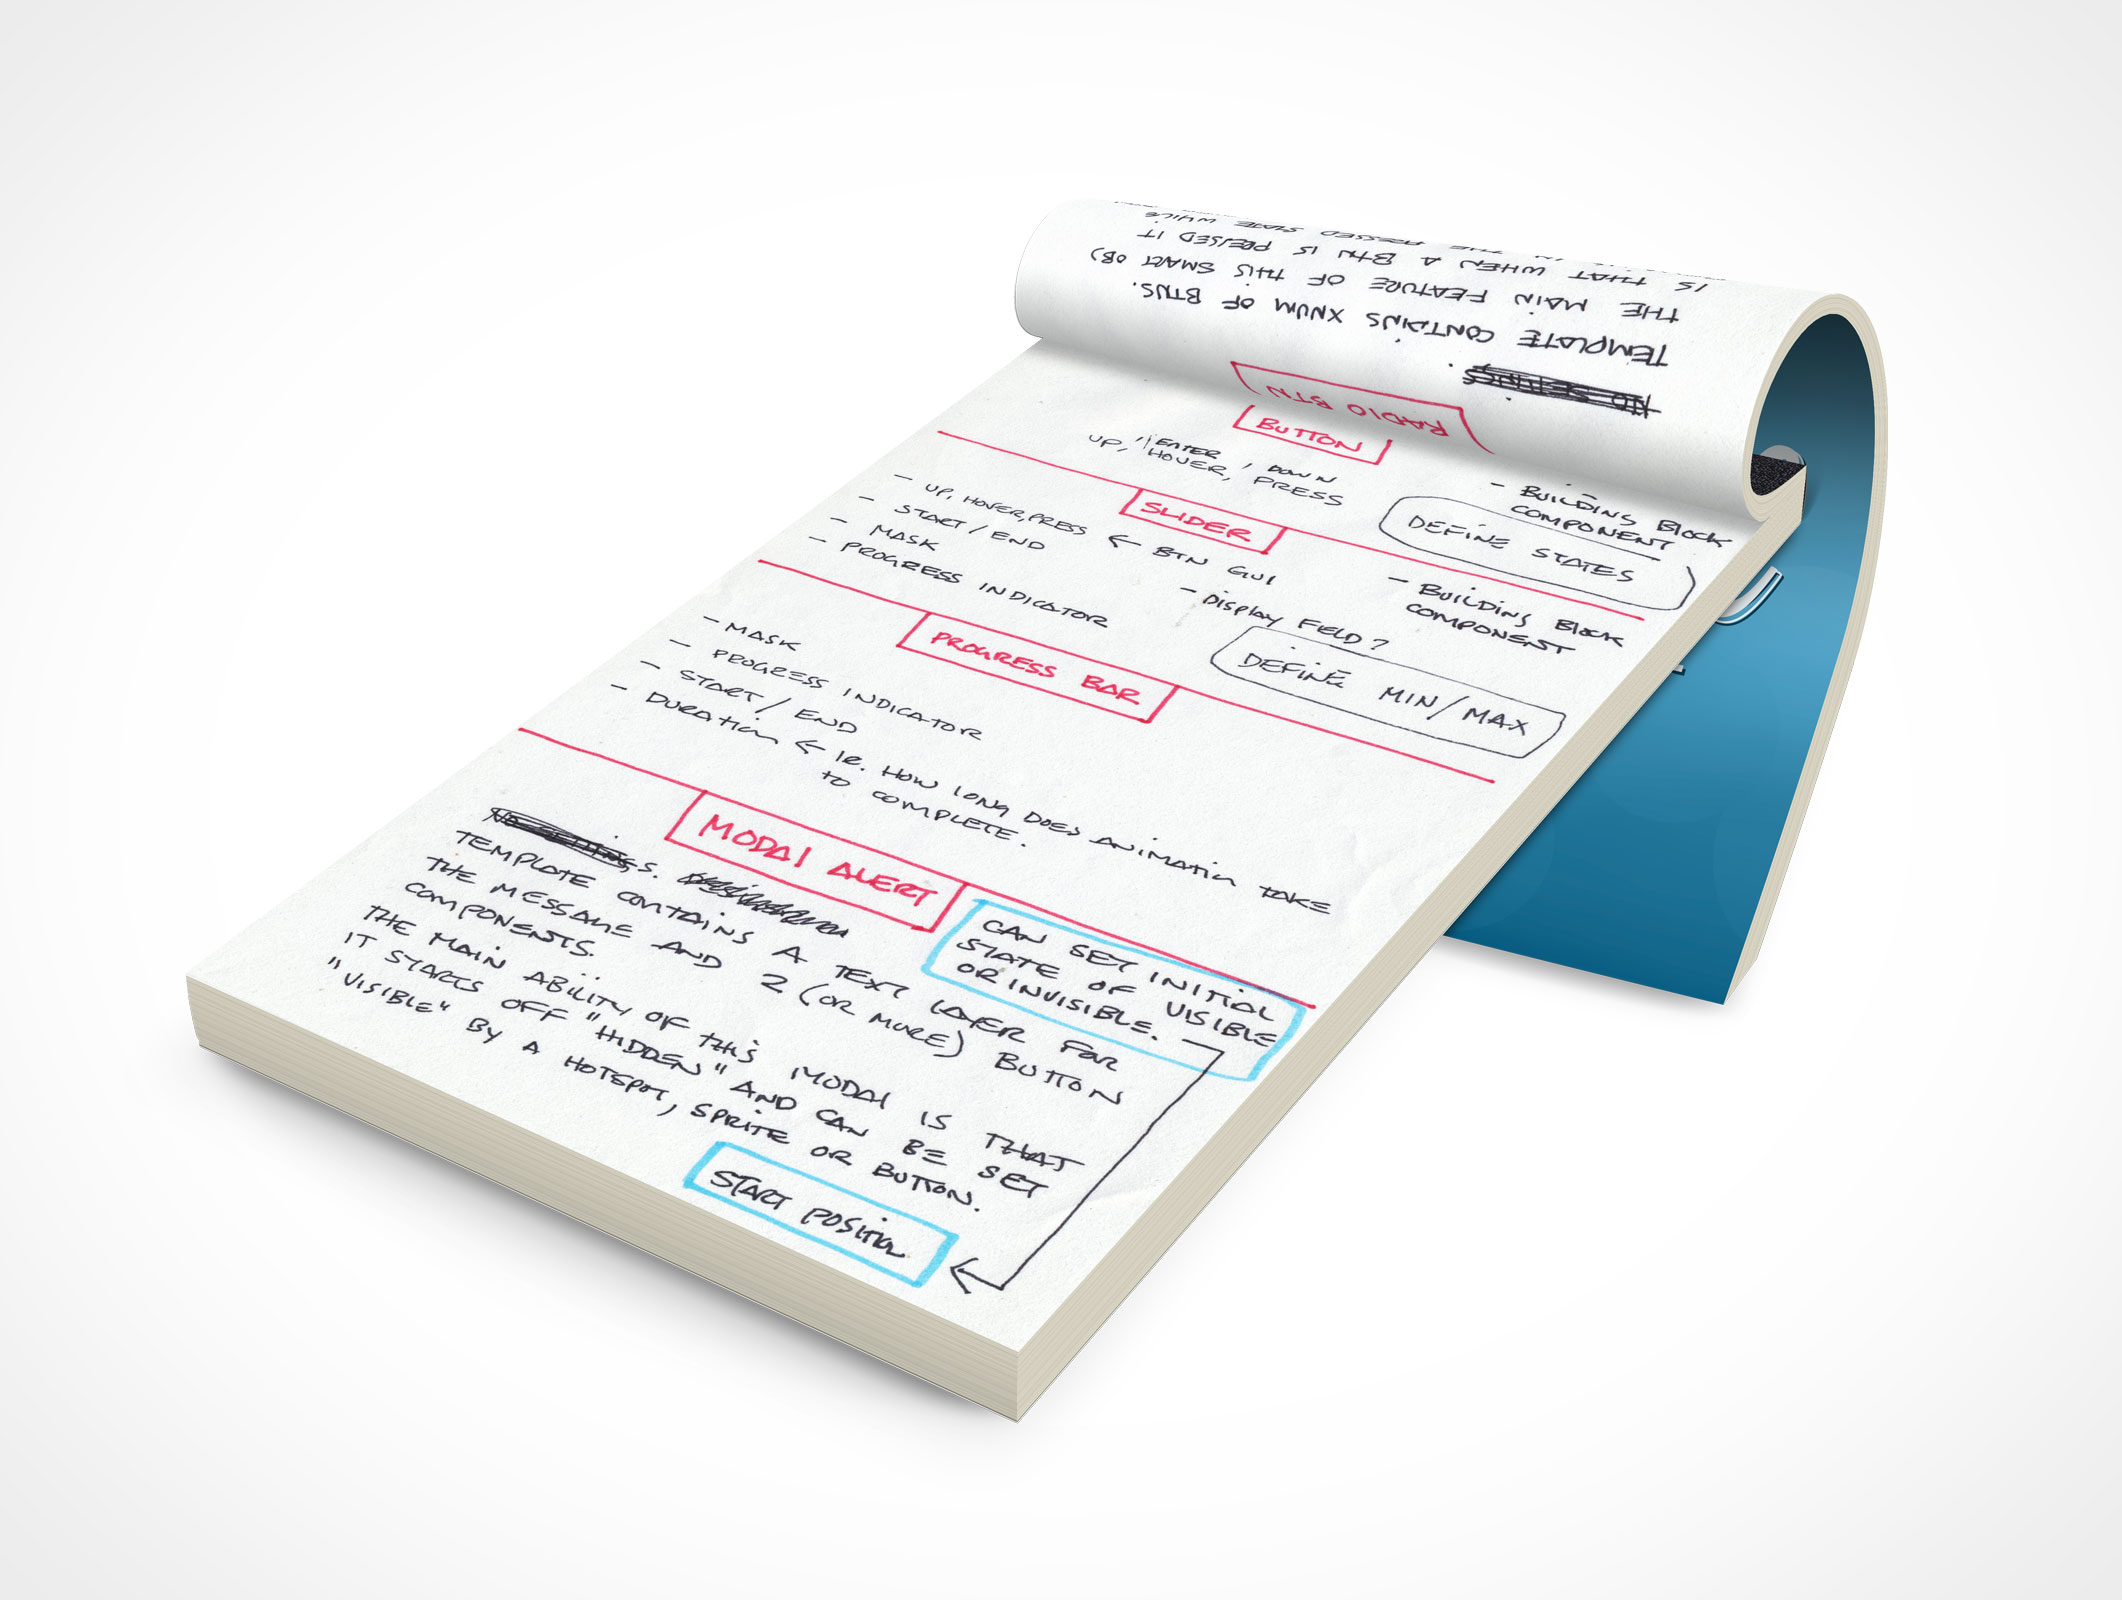 RADIO BTN
TEMPLATE CONTAINS XNUM OF BTNS.
THE MAIN FEATURE OF THIS SMART OBJ
IS THAT WHEN A BTN IS PRESSED IT
IN THE PRESSED STATE WHILE
BUTTON
UP, "ENTER, DOWN
HOVER, PRESS
- BUILDING BLOCK
COMPONENT
DEFINE STATES
SLIDER
- UP, HOVER, PRESS ← BTN GUI
- START / END
- MASK
- PROGRESS INDICATOR
- DISPLAY FIELD?
- BUILDING BLOCK
COMPONENT
DEFINE MIN/MAX
PROGRESS BAR
- MASK
- PROGRESS INDICATOR
- START / END
- DURATION ← IE. HOW LONG DOES ANIMATION TAKE
TO COMPLETE.
MODAL ALERT
TEMPLATE CONTAINS A TEXT LAYER FOR
THE MESSAGE AND 2 (OR MORE) BUTTON
COMPONENTS.
THE MAIN ABILITY OF THIS MODAL IS THAT
IT STARTS OFF "HIDDEN" AND CAN BE SET
"VISIBLE" BY A HOTSPOT, SPRITE OR BUTTON.
CAN SET INITIAL
STATE OF VISIBLE
OR INVISIBLE.
START POSITION